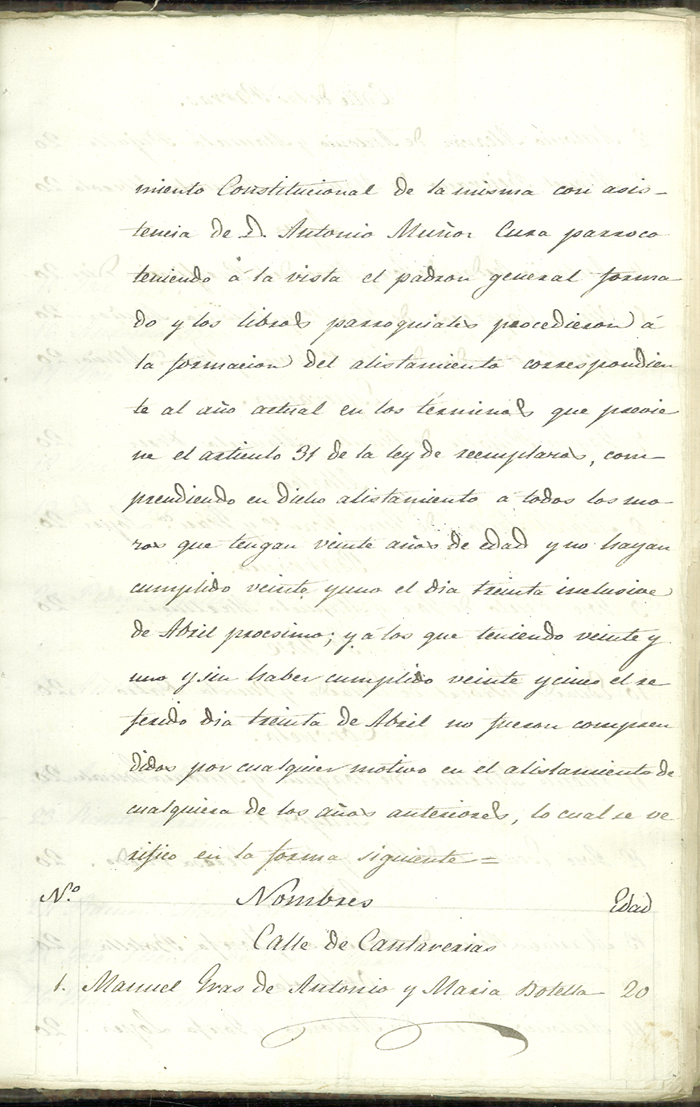 miento Constitucional de la misma con asis-
tencia de D. Antonio Muñoz Cura parroco
teniendo á la vista el padron general forma
do y los libros parroquiales procedieron á
la formacion del alistamiento correspondien
te al año actual en los términos que previe
ne el articulo 31 de la ley de reemplazos, com-
prendiendo en dicho alistamiento á todos los mo-
zos que tengan veinte años de edad y no hayan
cumplido veinte y uno el dia treinta inclusive
de Abril procsimo; y á los que teniendo veinte y
uno y sin haber cumplido veinte y cinco el re
ferido dia treinta de Abril no fueron compren
didos por cualquier motivo en el alistamiento de
cualquiera de los años anteriores, lo cual se ve
rifico en la forma siguiente =
N.º Nombres Edad
Calle de Cantarerias
1. Manuel Gras de Antonio y Maria Botella 20